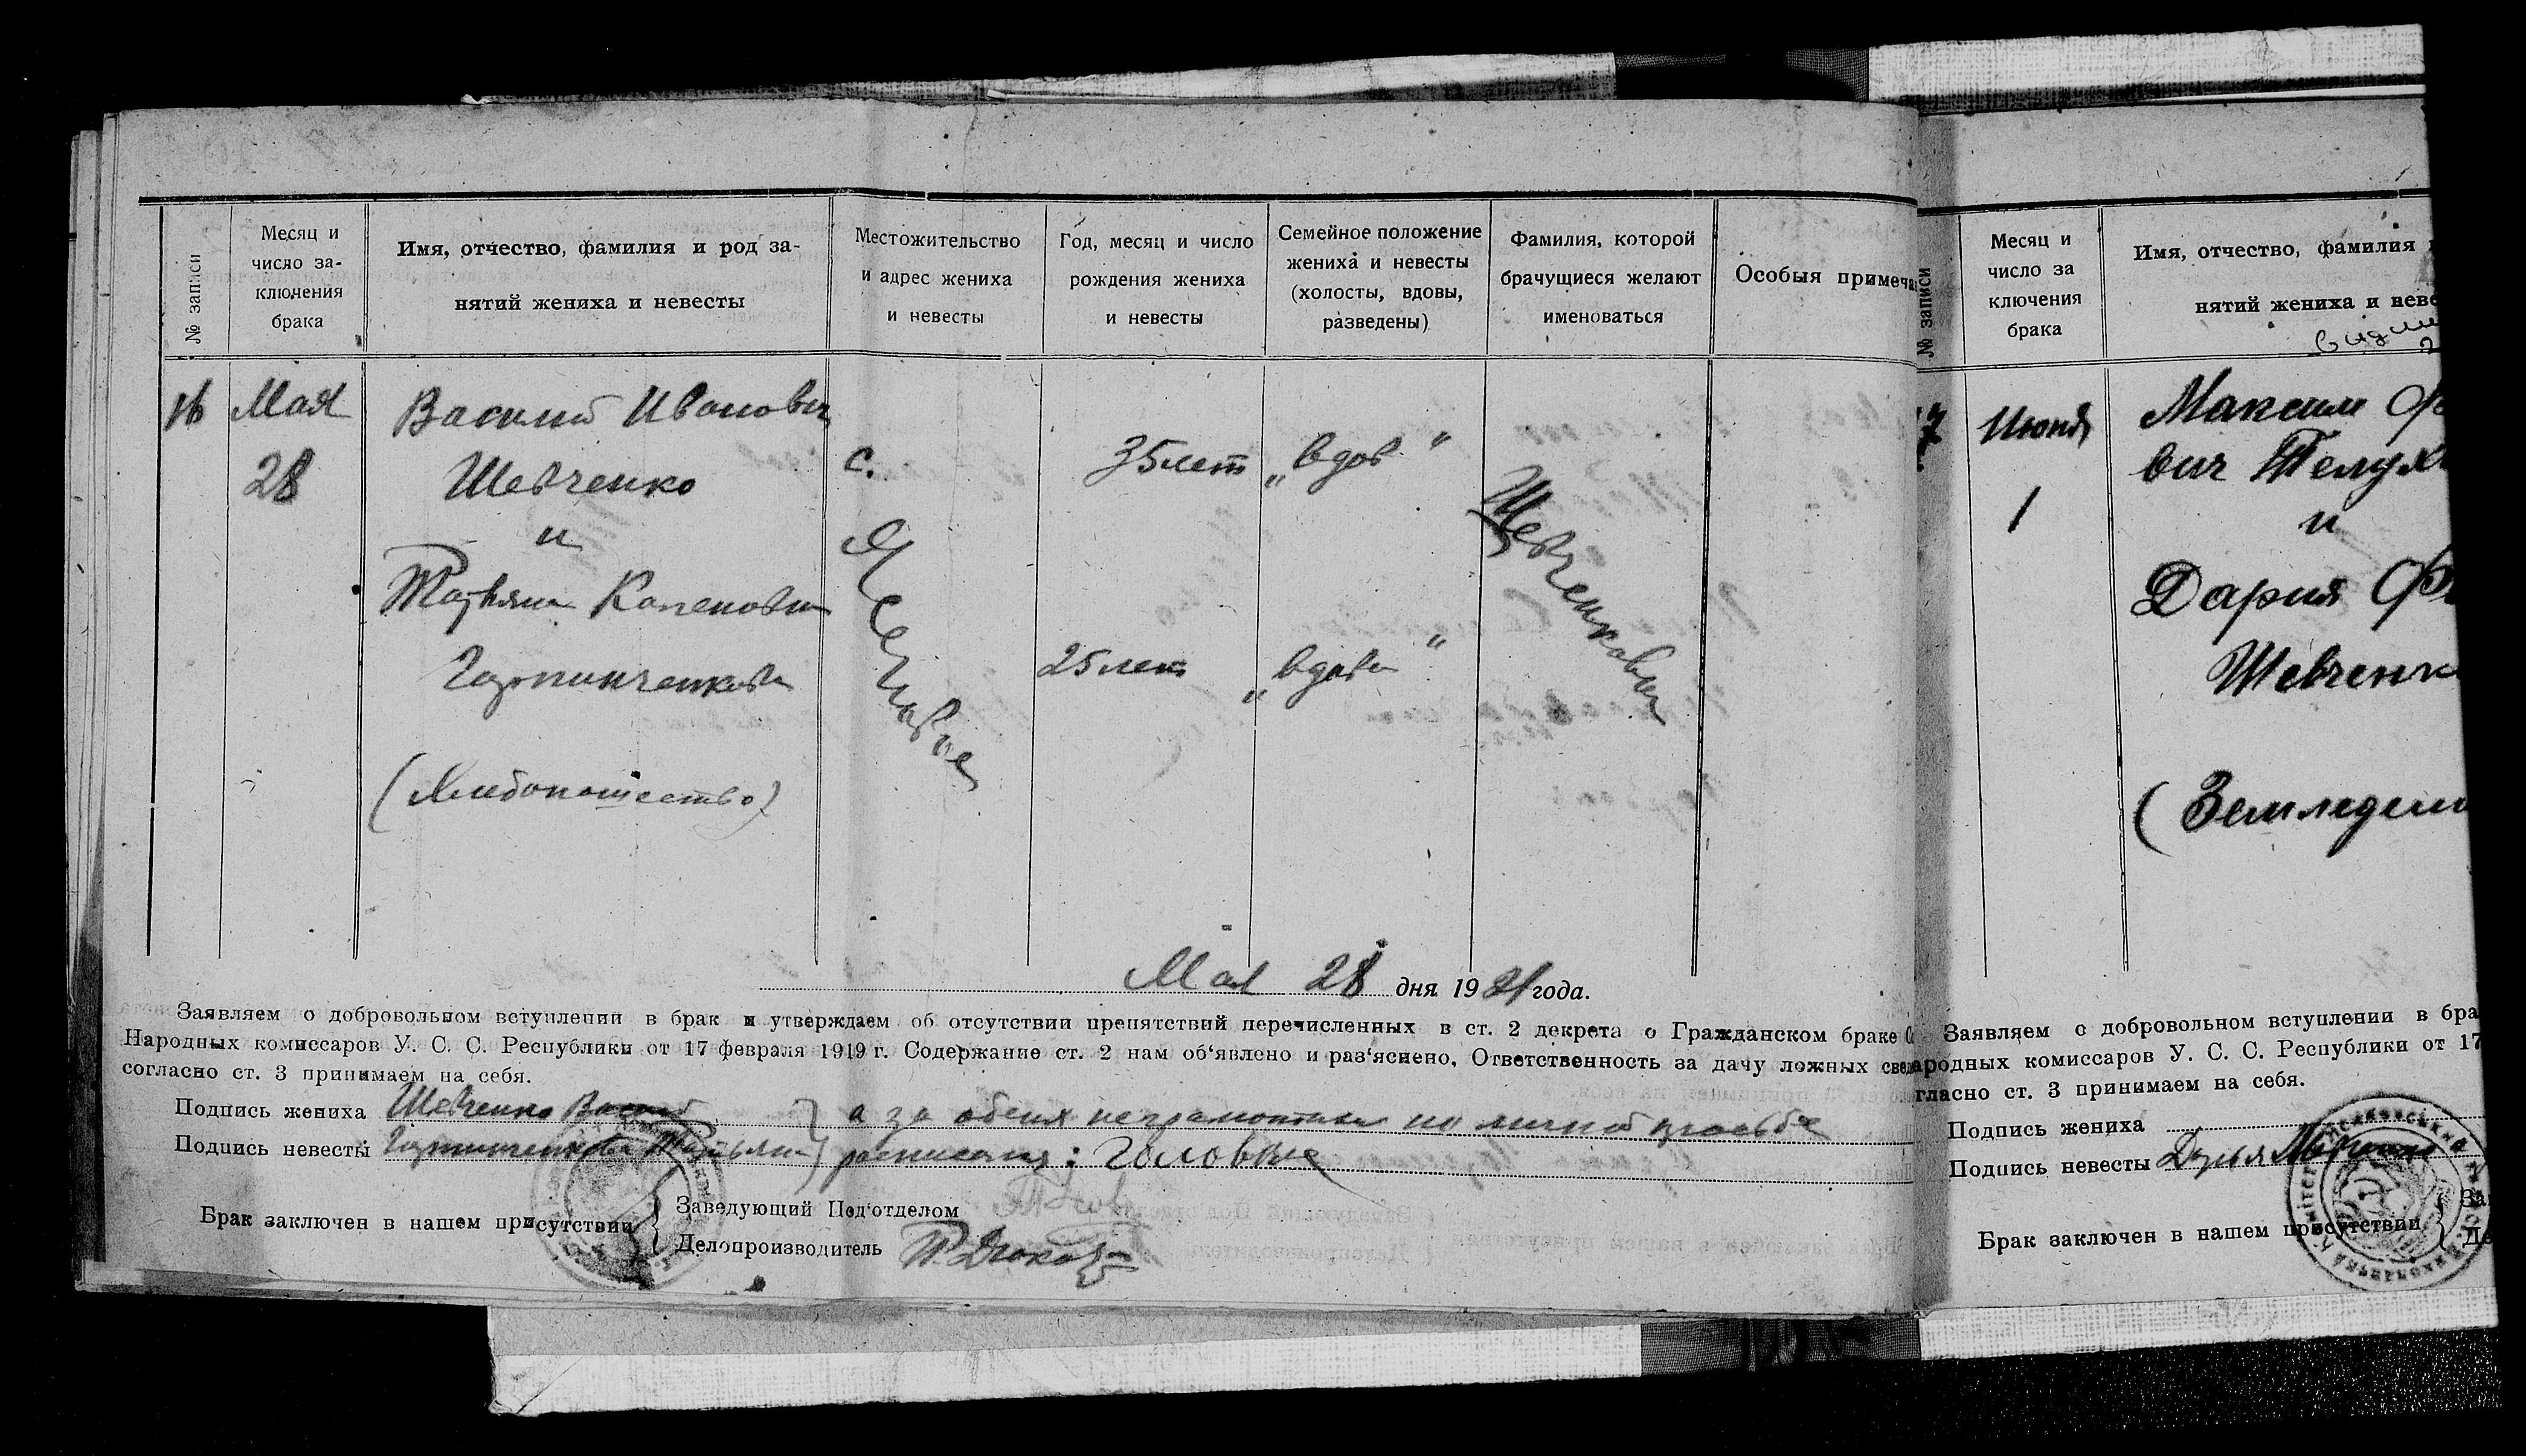 № записи
Месяц и
число за-
ключения
брака
Имя, отчество, фамилия и род за-
нятий жениха и невесты
Местожительство
и адрес жениха
и невесты
Год, месяц и число
рождения жениха
и невесты
Семейное положение
жениха и невесты
(холосты, вдовы,
разведены)
Фамилия, которой
брачущиеся желают
именоваться
Особыя примеча
16
Мая
28
Василий Иванович
Шевченко
и
Татьяна
(Хлебопашество)
с.
35 лет
„вдов"
25 лет
„вдова"
Шевченковы
Мая 28 дня 1921 года.
Заявляем о добровольном вступлении в брак и утверждаем об отсутствии препятствий перечисленных в ст. 2 декрета о Гражданском браке С
Народных комиссаров У. С. С. Республики от 17 февраля 1919 г. Содержание ст. 2 нам об'явлено и раз'яснено, Ответственность за дачу ложных свед
согласно ст. 3 принимаем на себя.
Подпись жениха Шевченко Васил
Подпись невесты Татьяна
а за обеих неграмотных по личной просьбе
Брак заключен в нашем присутствии
Заведующий Под'отделом
Делопроизводитель
№ записи
Месяц и
число за
ключения
брака
Имя, отчество, фамилия
нятий жениха и неве
17
Июня
1
Максим Ф
вич
и
Дария Ф
Шевченк
(Земледел
Заявляем о добровольном вступлении в бра
ародных комиссаров У. С. С. Республики от 17
гласно ст. 3 принимаем на себя.
Подпись жениха
Подпись невесты Дарья
Брак заключен в нашем присутствии
За
Де